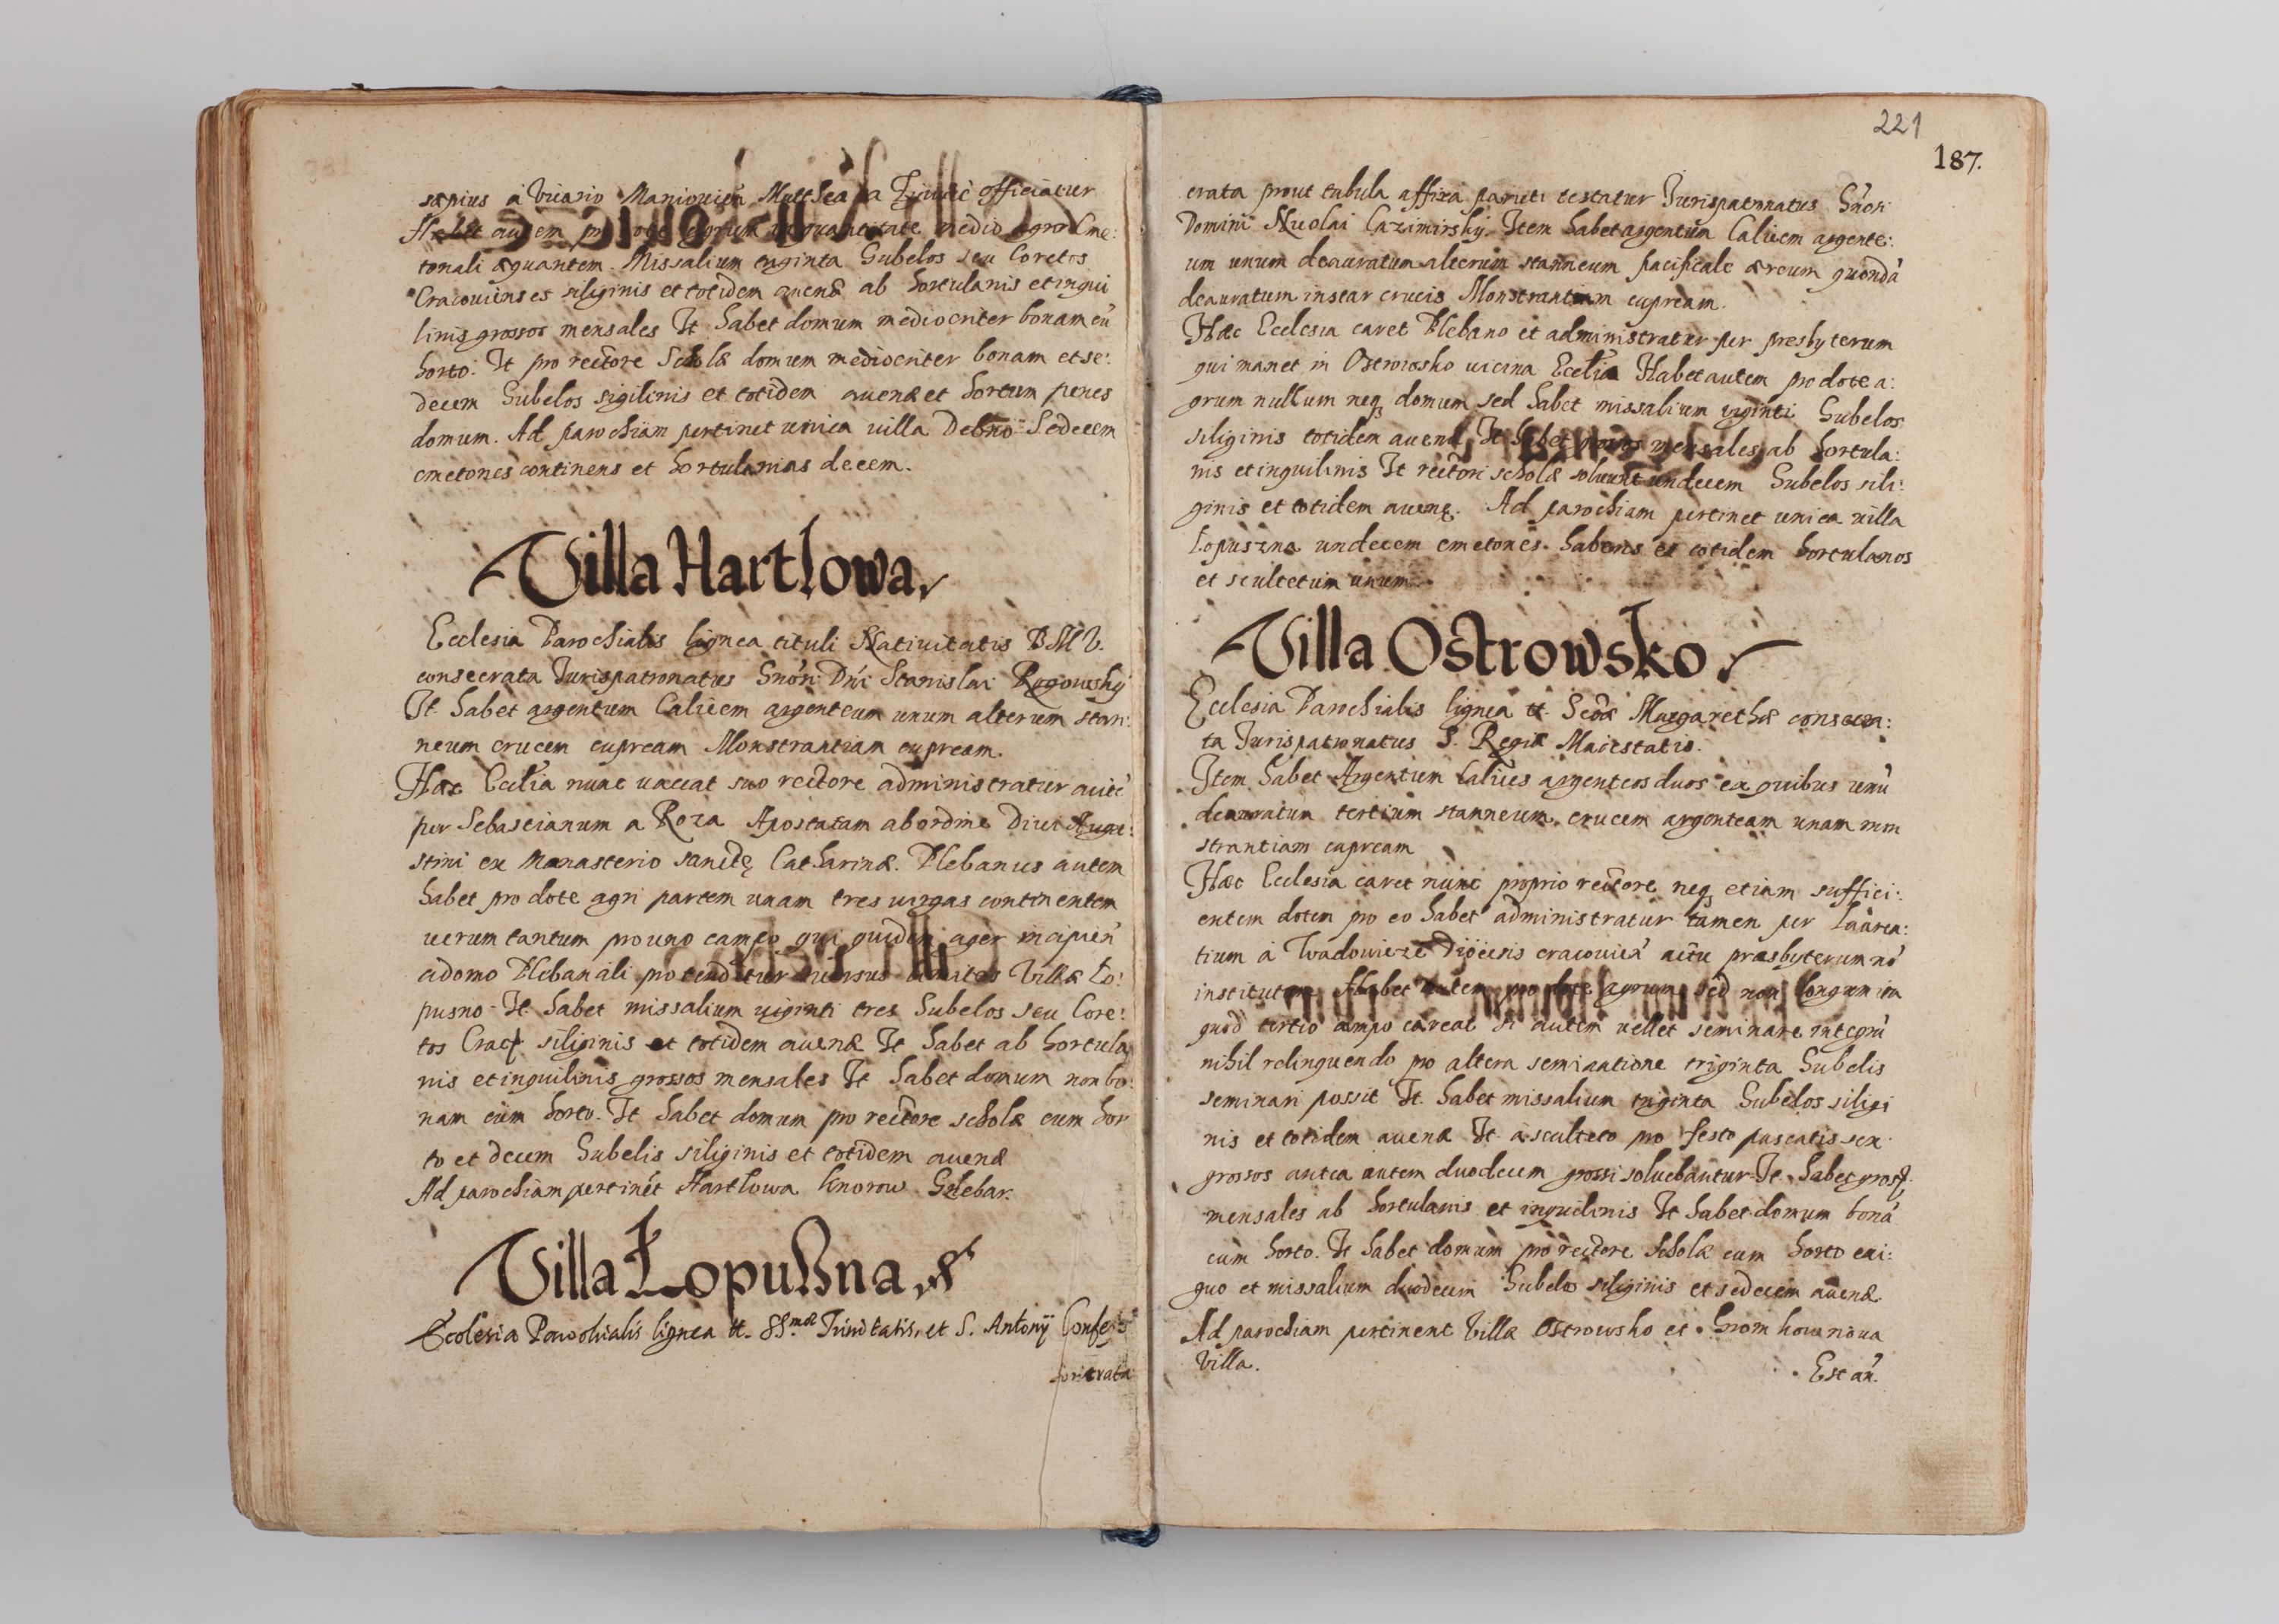 sæpius a Vicario Maniovien Matthea a Ziwiec officiatur
Habet autem pro dote agrum in quantitate medio agro Cme:
tonali æquantem. Missalium triginta Gubelos seu Coretos
Cracovienses siliginis et totidem avenæ ab hortulanis et inqui
linis grossos mensales It habet domum mediocriter bonam cū
horto. It pro rectore Scholæ domum mediocriter bonam et se:
decem Gubelos sigilinis et totidem avenæ et hortum penes
domum. Ad parochiam pertinet unica villa Debno Sedecem
cmetones continens et hortulanias decem.
Villa Hartlowa
Ecclesia Parochialis lignea tituli Nativitatis B M V.
consecrata Jurispatronatus Gnosi Dni Stanislai Rogowsky
It habet argentum Calicem argenteum unum alterum stan:
neum crucem cupream Monstrantiam cupream.
Hæc Ecclia nunc vaccat suo rectore administratur autē
per Sebastianum a Roza Apostatam ab ordine Divi Augu:
stini ex Monasterio sanctę Catharinæ. Plebanus autem
habet pro dote agri partem unam tres virgas continentem
verum tantum pro uno campo qui quidem ager incipien
a domo Plebanali protenditur versus limites Villæ Lo:
pusno It habet missalium viginti tres Gubelos seu Core:
tos Crac siliginis et totidem avenæ It habet ab hortula
nis et inquilinis grossos mensales It habet domum non bo:
nam cum horto. It habet domum pro rectore scholæ cum hor
to et decem Gubelis siliginis et totidem avenæ
Ad parochiam pertinēt Hartlowa Knorow Gelebar.
Villa Łopußna
Ecclesia Parochialis lignea tt. SS.mæ Trinitatis, et S. Antonÿ Confess
consecrata
221
187.
crata prout tabula affixa parieti testatur Jurispatronatus Gnosi
Domini Nicolai Cazimirsky. Item habet argentum Calicem argente:
um unum deauratum alterum stanneum pacificale æreum quondā
deauratum instar crucis Monstrantiam cupream.
Hæc Ecclesia caret Plebano et administratur per presbyterum
qui manet in Ostrowsko vicina Ecclia Habet autem pro dote a:
grum nullum neq domum sed habet missalium viginti Gubelos
siliginis totidem avenæ It habet grossos mensales ab hortula:
nis et inquilinis It rectori scholæ solvunt undecem Gubelos sili:
ginis et totidem avenę. Ad parochiam pertinet unica villa
Lopuszna undecem cmetones habens et totidem hortulanos
et scultetum unum.
Villa Ostrowsko
Ecclesia Parochialis lignea tt Sctæ Margarethæ consecra:
ta Jurispatronatus S. Regiæ Maiestatis.
Item habet Argentum Calices argenteos duos ex quibus unū
deauratum tertium stanneum, crucem argenteam unam mon
strantiam cupream
Hæc Ecclesia caret nunc proprio rectore neq etiam suffici:
entem dotem pro eo habet administratur tamen per Lauren:
tium a Wadowicze Diœcesis cracovien actu præsbyterum nō
institutum Habet autem pro dote agrum sed non longum ita
quod tertio campo careat si autem vellet seminare integrū
nihil relinquendo pro altera seminatione triginta Gubelis
seminari possit It. habet missalium triginta Gubelos siligi
nis et totidem avenæ It a sculteto pro festo pascatis sex
grossos antea autem duodecem grossi solvebantur It habet gross
mensales ab hortulanis et inquilinis It habet domum bonā
cum horto. It habet domum pro rectore Scholæ cum horto exi:
guo et missalium duodecim Gubelos siliginis et sedecem avenæ
Ad parochiam pertinent Villæ Ostrowsko et Gromkow nova
Villa.
Est an